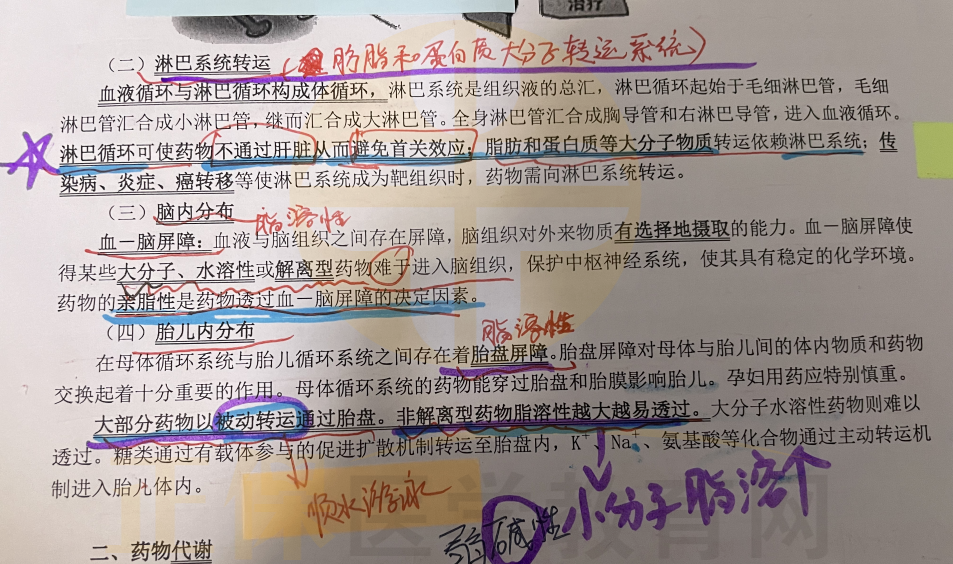 治疗
（二）淋巴系统转运（脂肪和蛋白质大分子转运系统）
血液循环与淋巴循环构成体循环，淋巴系统是组织液的总汇，淋巴循环起始于毛细淋巴管，毛细
淋巴管汇合成小淋巴管，继而汇合成大淋巴管。全身淋巴管汇合成胸导管和右淋巴导管，进入血液循环。
淋巴循环可使药物不通过肝脏从而避免首关效应；脂肪和蛋白质等大分子物质转运依赖淋巴系统；传
染病、炎症、癌转移等使淋巴系统成为靶组织时，药物需向淋巴系统转运。
（三）脑内分布 脂溶性
血－脑屏障：血液与脑组织之间存在屏障，脑组织对外来物质有选择地摄取的能力。血－脑屏障使
得某些大分子、水溶性或解离型药物难于进入脑组织，保护中枢神经系统，使其具有稳定的化学环境。
药物的亲脂性是药物透过血－脑屏障的决定因素。
（四）胎儿内分布
脂溶性
在母体循环系统与胎儿循环系统之间存在着胎盘屏障。胎盘屏障对母体与胎儿间的体内物质和药物
交换起着十分重要的作用。母体循环系统的药物能穿过胎盘和胎膜影响胎儿。孕妇用药应特别慎重。
大部分药物以被动转运通过胎盘。非解离型药物脂溶性越大越易透过。大分子水溶性药物则难以
透过。糖类通过有载体参与的促进扩散机制转运至胎盘内，K⁺、Na⁺、氨基酸等化合物通过主动转运机
制进入胎儿体内。
顺水游泳
小分子脂溶个
弱碱性
医学教育网
二、药物代谢